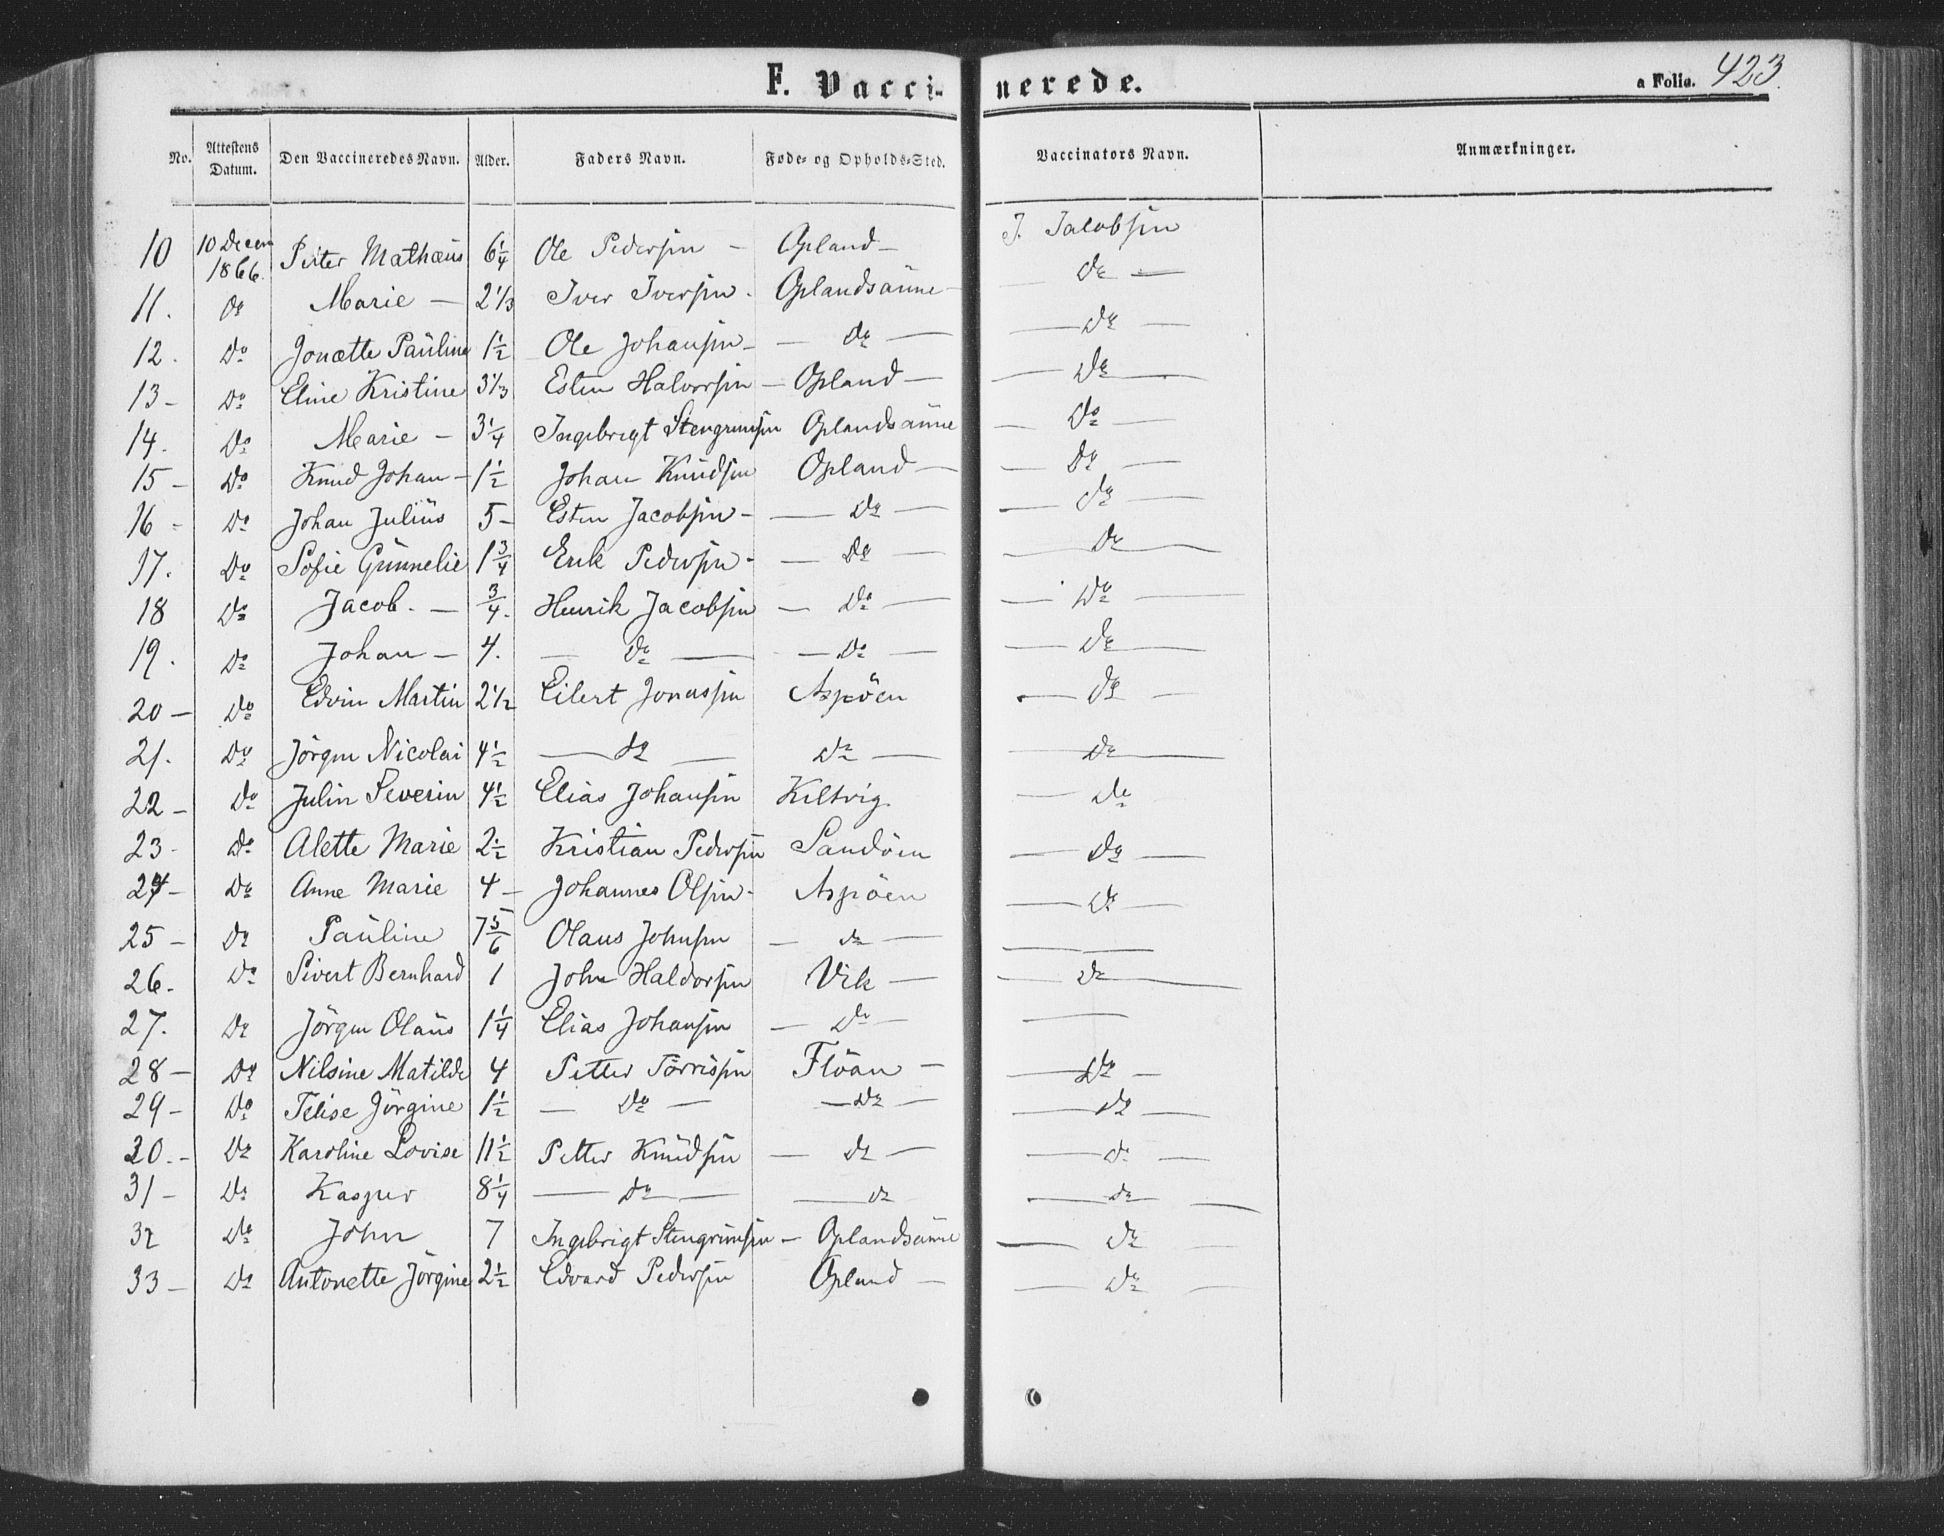 F. Vacci-nerede.
a Folio. 423.
No. Attestens Datum. Den Vaccineredes Navn. Alder. Faders Navn. Føde- og Opholds-Sted. Vaccinators Navn. Anmærkninger.
10 10 Decem 1866. Peter Mathæus 6 1/4 Ole Pedersen – Opland – J. Jacobsen
11. Do Marie – 2 1/3 Iver Iversen. Oplandsånne – Do –
12. Do Jonætte Pauline 1 1/2 Ole Johansen – – do – – Do –
13 – Do Eline Kristine 3 1/3 Esten Halvorsen – Opland – – Do –
14. Do Marie – 3 1/4 Ingebrigt Stengrimsen Oplandsånne – Do –
15 – Do Knud Johan – 1 1/2 Johan Knudsen Opland – – Do –
16 – Do Johan Julius 5 – Esten Jacobsen – – Do – – Do –
17. Do Sofie Gunnelie 1 3/4 Erik Pedersen – – Do – – Do –
18 Do Jacob. – 3/4. Henrik Jacobsen – Do – – Do –
19. Do Johan – 4. – Do – – Do – – Do –
20 – Do Edvin Martin 2 1/2 Eilert Jonassen Aspöen – Do –
21. Do Jörgen Nicolai 4 1/2 – do – Do – – Do –
22 – Do Julin Severin 4 1/2 Elias Johansen Kiltvig. – Do –
23 – Do Alette Marie 2 1/2 Kristian Pedersen Sandöen – Do –
24 – Do Anne Marie 4 – Johannes Olsen – Aspöen – Do –
25 – Do Pauline 7 5/6 Olaus Johnsen – do – –
26. Do Sivert Bernhard 1 John Haldorsen Vik – – Do –
27. Do Jörgen Olaus 1 1/4 Elias Johansen – Do – –
28 – Do Nilsine Matilde 4 Petter Törrisen Flöan – – Do –
29 – Do Felise Jörgine 1 1/2 – Do – – Do – – Do –
30. – Do Karoline Lovise 11 1/2 Petter Knudsen – do – – do –
31 – Do Kasper 8 1/4 – Do – – do – do –
32 Do John 7 Ingebrigt Stengrimsen – Oplandsånne – Do –
33 – Do Antonette Jörgine 2 1/2 Edvard Pedersen Opland – – Do –